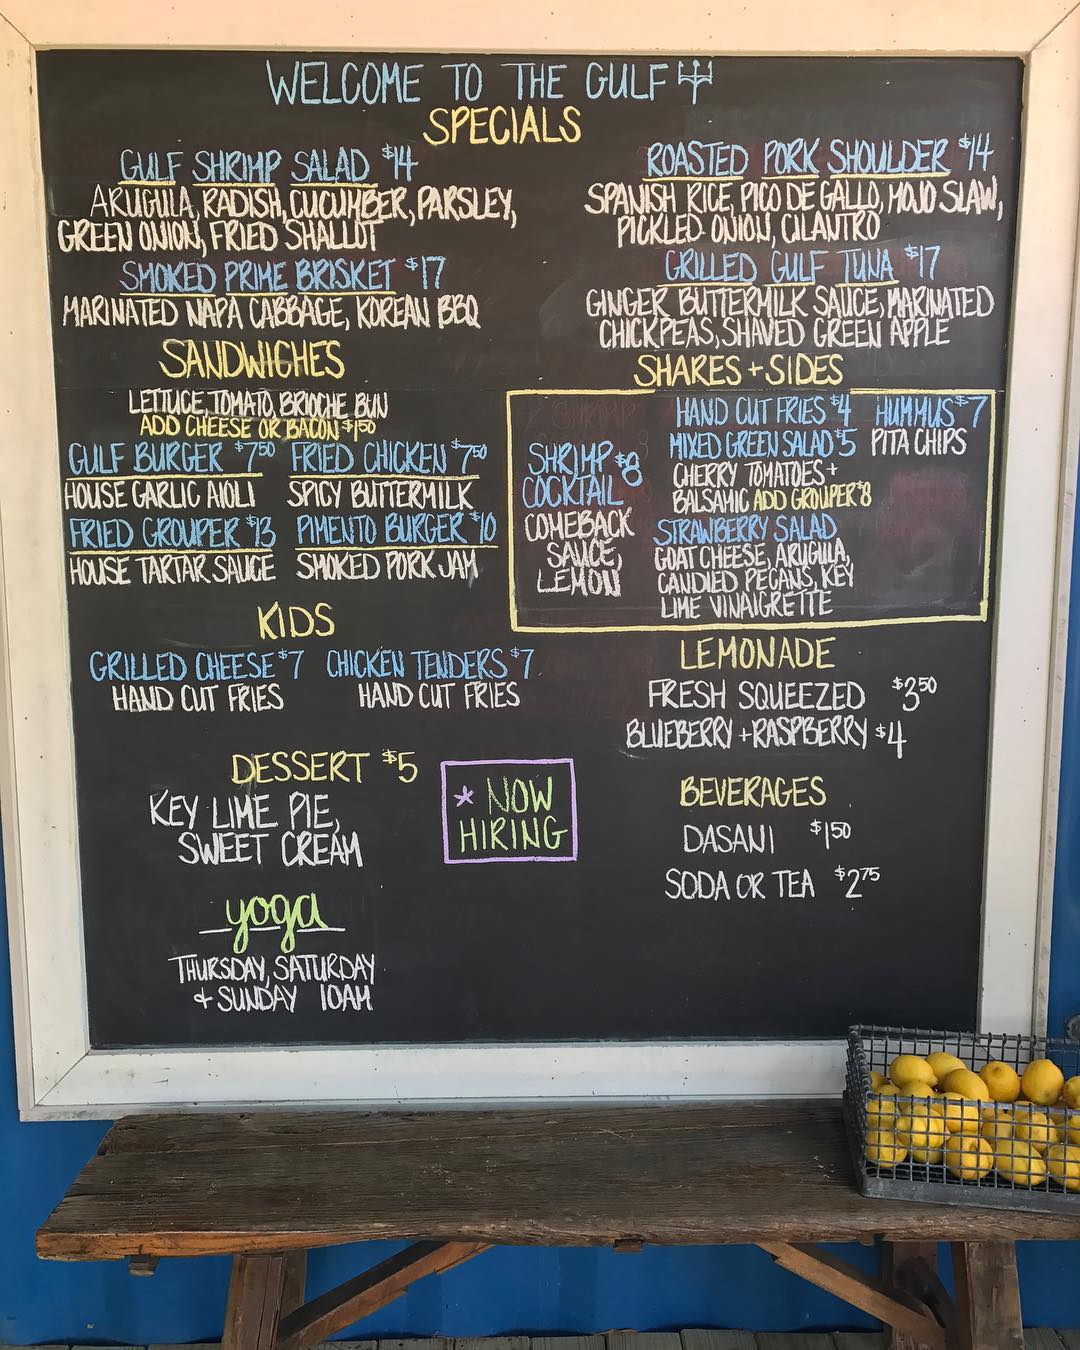 WELCOME TO THE GULF
SPECIALS
GULF SHRIMP SALAD $14
ARUGULA, RADISH, CUCUMBER, PARSLEY,
GREEN ONION, FRIED SHALLOT
SMOKED PRIME BRISKET $17
MARINATED NAPA CABBAGE, KOREAN BBQ
ROASTED PORK SHOULDER $14
SPANISH RICE, PICO DE GALLO, MOJO SLAW,
PICKLED ONION, CILANTRO
GRILLED GULF TUNA $17
GINGER BUTTERMILK SAUCE, MARINATED
CHICKPEAS, SHAVED GREEN APPLE
SANDWICHES
LETTUCE, TOMATO, BRIOCHE BUN
ADD CHEESE OR BACON $1.50
GULF BURGER $7.50 FRIED CHICKEN $7.50
HOUSE GARLIC AIOLI SPICY BUTTERMILK
FRIED GROUPER $13 PIMENTO BURGER $10
HOUSE TARTAR SAUCE SMOKED PORK JAM
SHARES + SIDES
SHRIMP $8
COCKTAIL
COMEBACK
SAUCE,
LEMON
HAND CUT FRIES $4
MIXED GREEN SALAD $5
CHERRY TOMATOES +
BALSAMIC ADD GROUPER $8
STRAWBERRY SALAD
GOAT CHEESE, ARUGULA,
CANDIED PECANS, KEY
LIME VINAIGRETTE
HUMMUS $7
PITA CHIPS
KIDS
GRILLED CHEESE $7 CHICKEN TENDERS $7
HAND CUT FRIES HAND CUT FRIES
LEMONADE
FRESH SQUEEZED $3.50
BLUEBERRY + RASPBERRY $4
DESSERT $5
KEY LIME PIE,
SWEET CREAM
* NOW
HIRING
BEVERAGES
DASANI $1.50
SODA OR TEA $2.75
yoga
THURSDAY, SATURDAY
+ SUNDAY 10AM